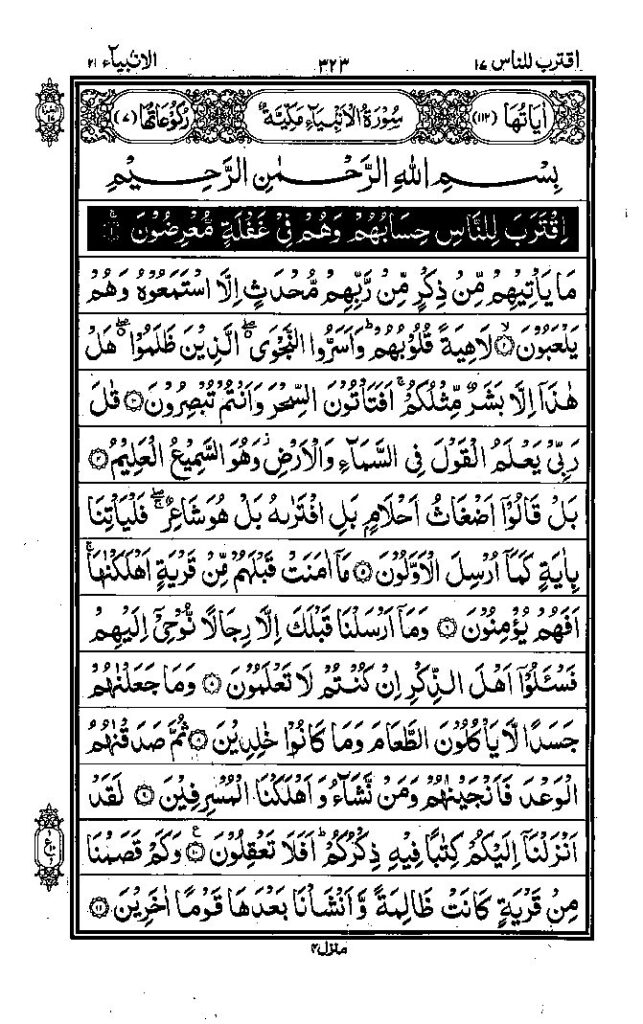 اقترب للناس ۱۷ ۳۲۳ الانبیآء ۲۱
اٰیَاتُهَا (۱۱۲) سُوْرَةُ الْاَنْۢبِیَآءِ مَكِّیَّةٌ رُكُوْعَاتُهَا (۷)
بِسْمِ اللّٰهِ الرَّحْمٰنِ الرَّحِیْمِ
اِقْتَرَبَ لِلنَّاسِ حِسَابُهُمْ وَهُمْ فِیْ غَفْلَةٍ مُّعْرِضُوْنَ ۱
مَا یَاْتِیْهِمْ مِّنْ ذِكْرٍ مِّنْ رَّبِّهِمْ مُّحْدَثٍ اِلَّا اسْتَمَعُوْهُ وَهُمْ
یَلْعَبُوْنَ ۲ لَاهِیَةً قُلُوْبُهُمْ ؕ وَاَسَرُّوا النَّجْوَی ۖ الَّذِیْنَ ظَلَمُوْا ۖ هَلْ
هٰذَاۤ اِلَّا بَشَرٌ مِّثْلُكُمْ ۚ اَفَتَاْتُوْنَ السِّحْرَ وَاَنْتُمْ تُبْصِرُوْنَ ۳ قٰلَ
رَبِّیْ یَعْلَمُ الْقَوْلَ فِی السَّمَآءِ وَالْاَرْضِ ؗ وَهُوَ السَّمِیْعُ الْعَلِیْمُ ۴
بَلْ قَالُوْۤا اَضْغَاثُ اَحْلَامٍۭ بَلِ افْتَرٰىهُ بَلْ هُوَ شَاعِرٌ ۖۚ فَلْیَاْتِنَا
بِاٰیَةٍ كَمَاۤ اُرْسِلَ الْاَوَّلُوْنَ ۵ مَاۤ اٰمَنَتْ قَبْلَهُمْ مِّنْ قَرْیَةٍ اَهْلَكْنٰهَا ۚ
اَفَهُمْ یُؤْمِنُوْنَ ۶ وَمَاۤ اَرْسَلْنَا قَبْلَكَ اِلَّا رِجَالًا نُّوْحِیْۤ اِلَیْهِمْ
فَسْـَٔلُوْۤا اَهْلَ الذِّكْرِ اِنْ كُنْتُمْ لَا تَعْلَمُوْنَ ۷ وَمَا جَعَلْنٰهُمْ
جَسَدًا لَّا یَاْكُلُوْنَ الطَّعَامَ وَمَا كَانُوْا خٰلِدِیْنَ ۸ ثُمَّ صَدَقْنٰهُمُ
الْوَعْدَ فَاَنْجَیْنٰهُمْ وَمَنْ نَّشَآءُ وَاَهْلَكْنَا الْمُسْرِفِیْنَ ۹ لَقَدْ
اَنْزَلْنَاۤ اِلَیْكُمْ كِتٰبًا فِیْهِ ذِكْرُكُمْ ؕ اَفَلَا تَعْقِلُوْنَ ۱۰ وَكَمْ قَصَمْنَا
مِنْ قَرْیَةٍ كَانَتْ ظَالِمَةً وَّاَنْشَاْنَا بَعْدَهَا قَوْمًا اٰخَرِیْنَ ۱۱
منزل۴